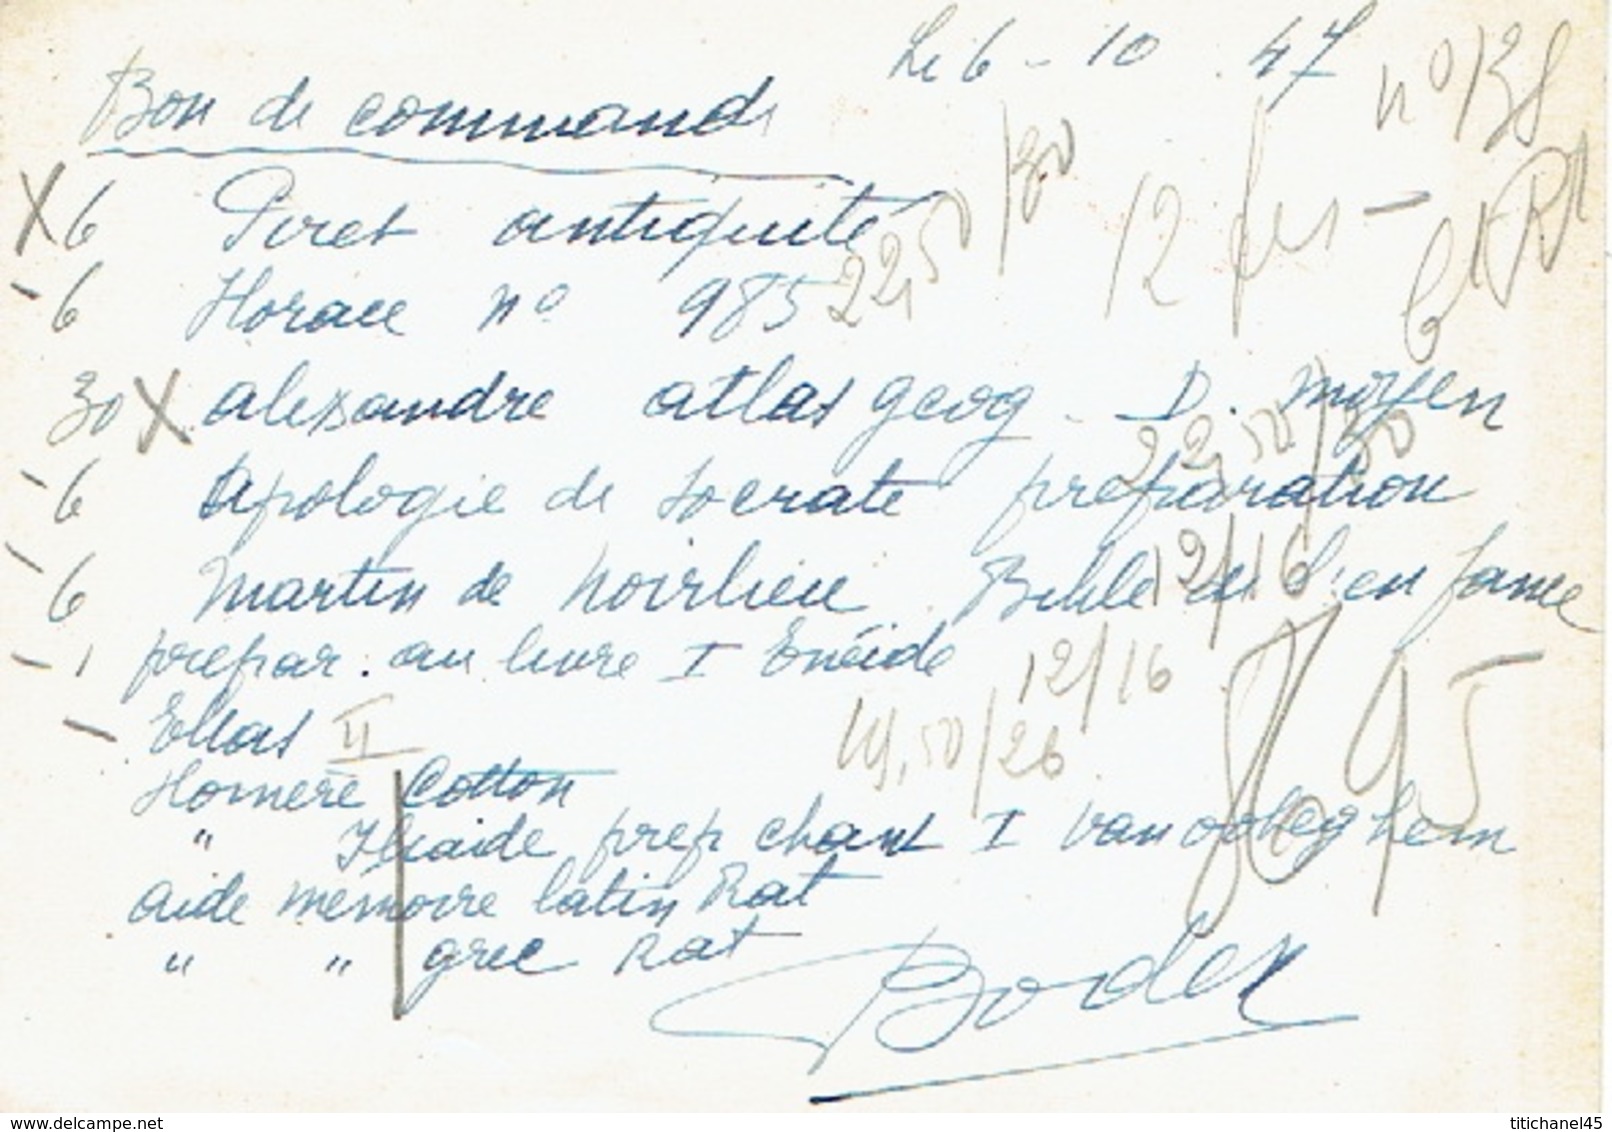 Le 6 - 10 . 47
n° 138
Bon de commande
X 6 Piret antiquité 22,50/30 12 fus -
- 6 Horace n° 985
30 X alexandre atlas geog - D. moyen
22,50/30
- 6 Apologie de Socrate préparation
12/16
- 6 Martin de Noirlieu Bible de l'enfance
- 1 prepar. au livre I Enéide 12/16
- Ellas II 19,50/26
86 95
Homère Cotton
" Iliade prep chant I Van Ooteghem
aide mémoire latin Rat
" " grec Rat
Bodex
delcampe.net
titichanel45